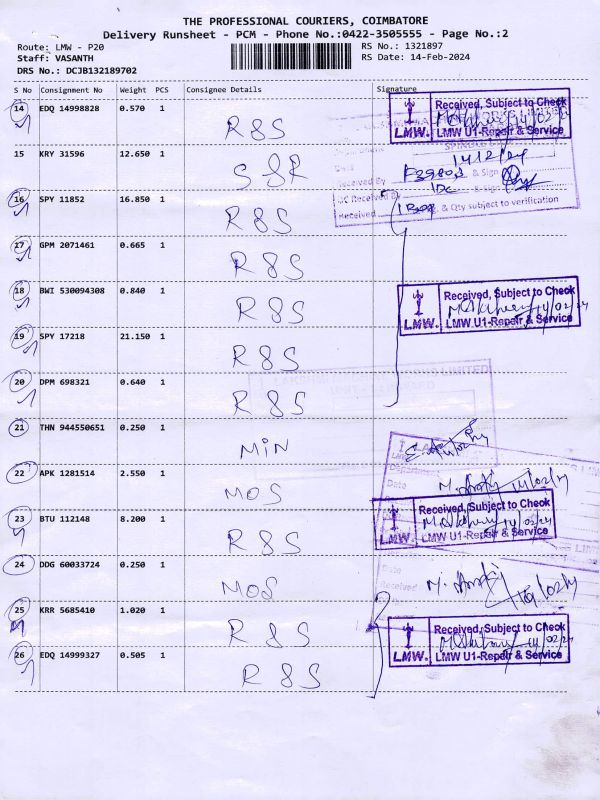 THE PROFESSIONAL COURIERS, COIMBATORE
Delivery Runsheet - PCM - Phone No.:0422-3505555 - Page No.:2
Route: LMW - P20
RS No.: 1321897
Staff: VASANTH
RS Date: 14-Feb-2024
DRS No.: DCJB132189702
S No Consignment No Weight PCS Consignee Details Signature
14 EDQ 14998828 0.570 1 R&S
Received, Subject to Check
14/02/24
LMW. LMW U1-Repair & Service
15 KRY 31596 12.650 1 S&R
SPINDLE
14/2/24
Received By & Sign
Received & Qty subject to verification
16 SPY 11852 16.850 1 R&S
17 GPM 2071461 0.665 1 R&S
18 BWI 530094308 0.840 1 R&S
Received, Subject to Check
14/02/24
LMW. LMW U1-Repair & Service
19 SPY 17218 21.150 1 R&S
20 DPM 698321 0.640 1 R&S
21 THN 944550651 0.250 1 MIN
22 APK 1281514 2.550 1 MOS
23 BTU 112148 8.200 1 R&S
Received, Subject to Check
14/02/24
LMW. LMW U1-Repair & Service
24 DDG 60033724 0.250 1 MOS
25 KRR 5685410 1.020 1 R&S
Received, Subject to Check
14/02/24
LMW. LMW U1-Repair & Service
26 EDQ 14999327 0.505 1 R&S